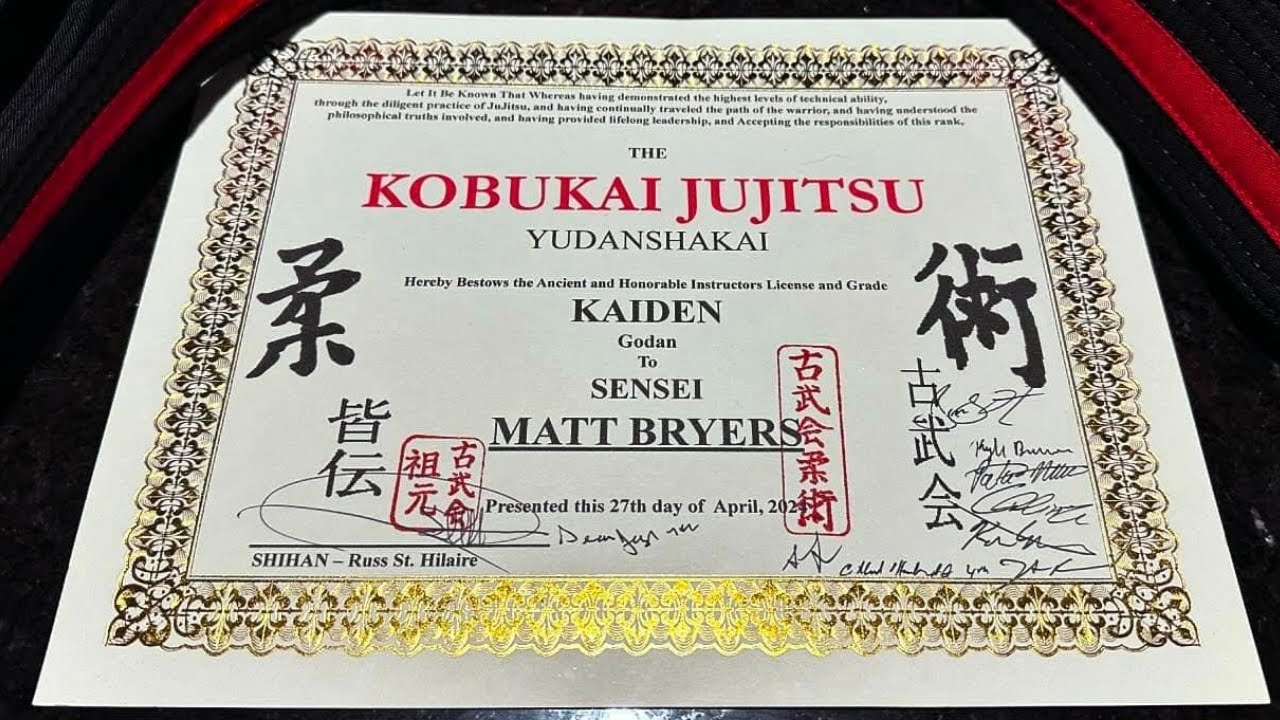 Let It Be Known That Whereas having demonstrated the highest levels of technical ability,
through the diligent practice of JuJitsu, and having continually traveled the path of the warrior, and having understood the
philosophical truths involved, and having provided lifelong leadership, and Accepting the responsibilities of this rank,
THE
KOBUKAI JUJITSU
YUDANSHAKAI
柔
術
Hereby Bestows the Ancient and Honorable Instructors License and Grade
KAIDEN
Godan
To
SENSEI
MATT BRYERS
皆伝
古武会
祖元
古武会柔術
古武会
Presented this 27th day of April,
SHIHAN – Russ St. Hilaire